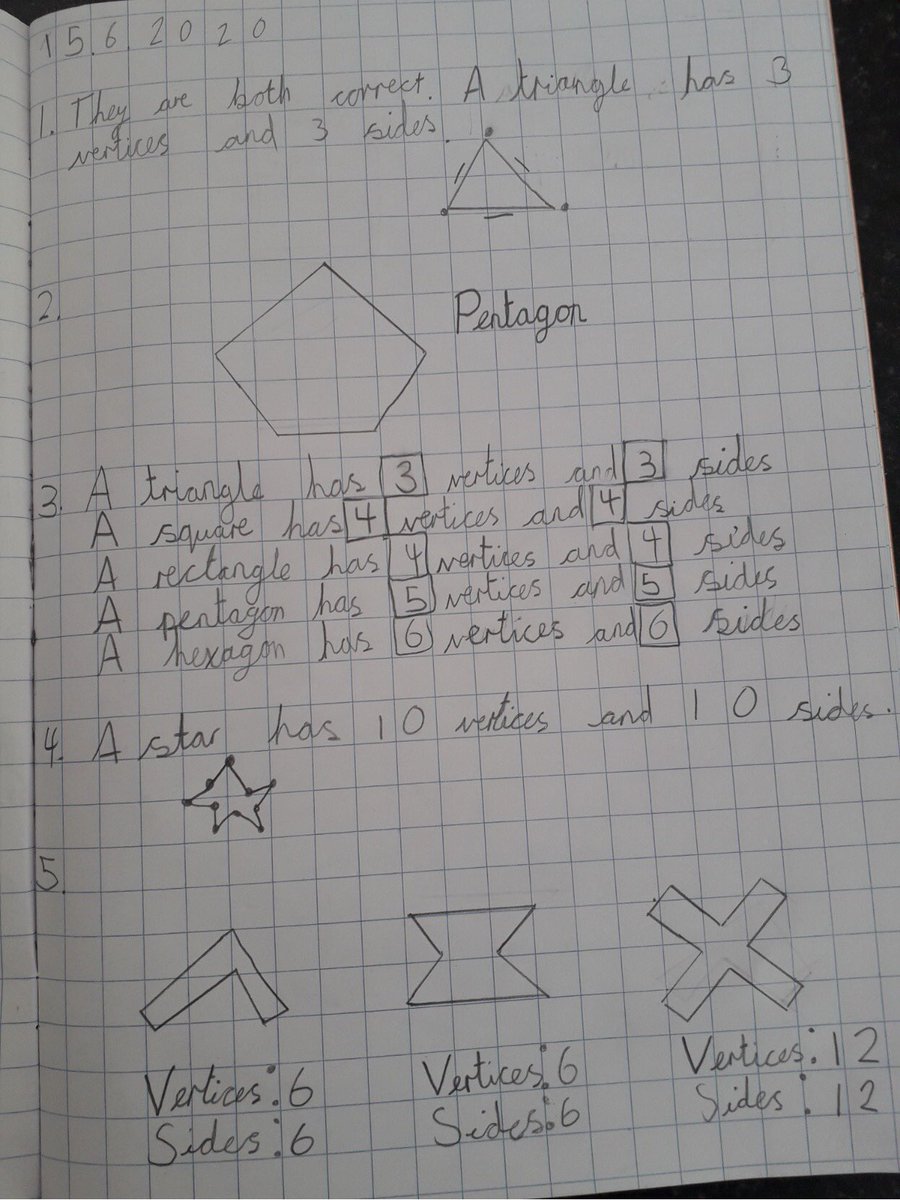 15.6.2020
1. They are both correct. A triangle has 3
vertices and 3 sides.
2. Pentagon
3. A triangle has 3 vertices and 3 sides
A square has 4 vertices and 4 sides
A rectangle has 4 vertices and 4 sides
A pentagon has 5 vertices and 5 sides
A hexagon has 6 vertices and 6 sides
4. A star has 10 vertices and 10 sides.
5.
Vertices: 6
Sides: 6
Vertices: 6
Sides: 6
Vertices: 12
Sides: 12